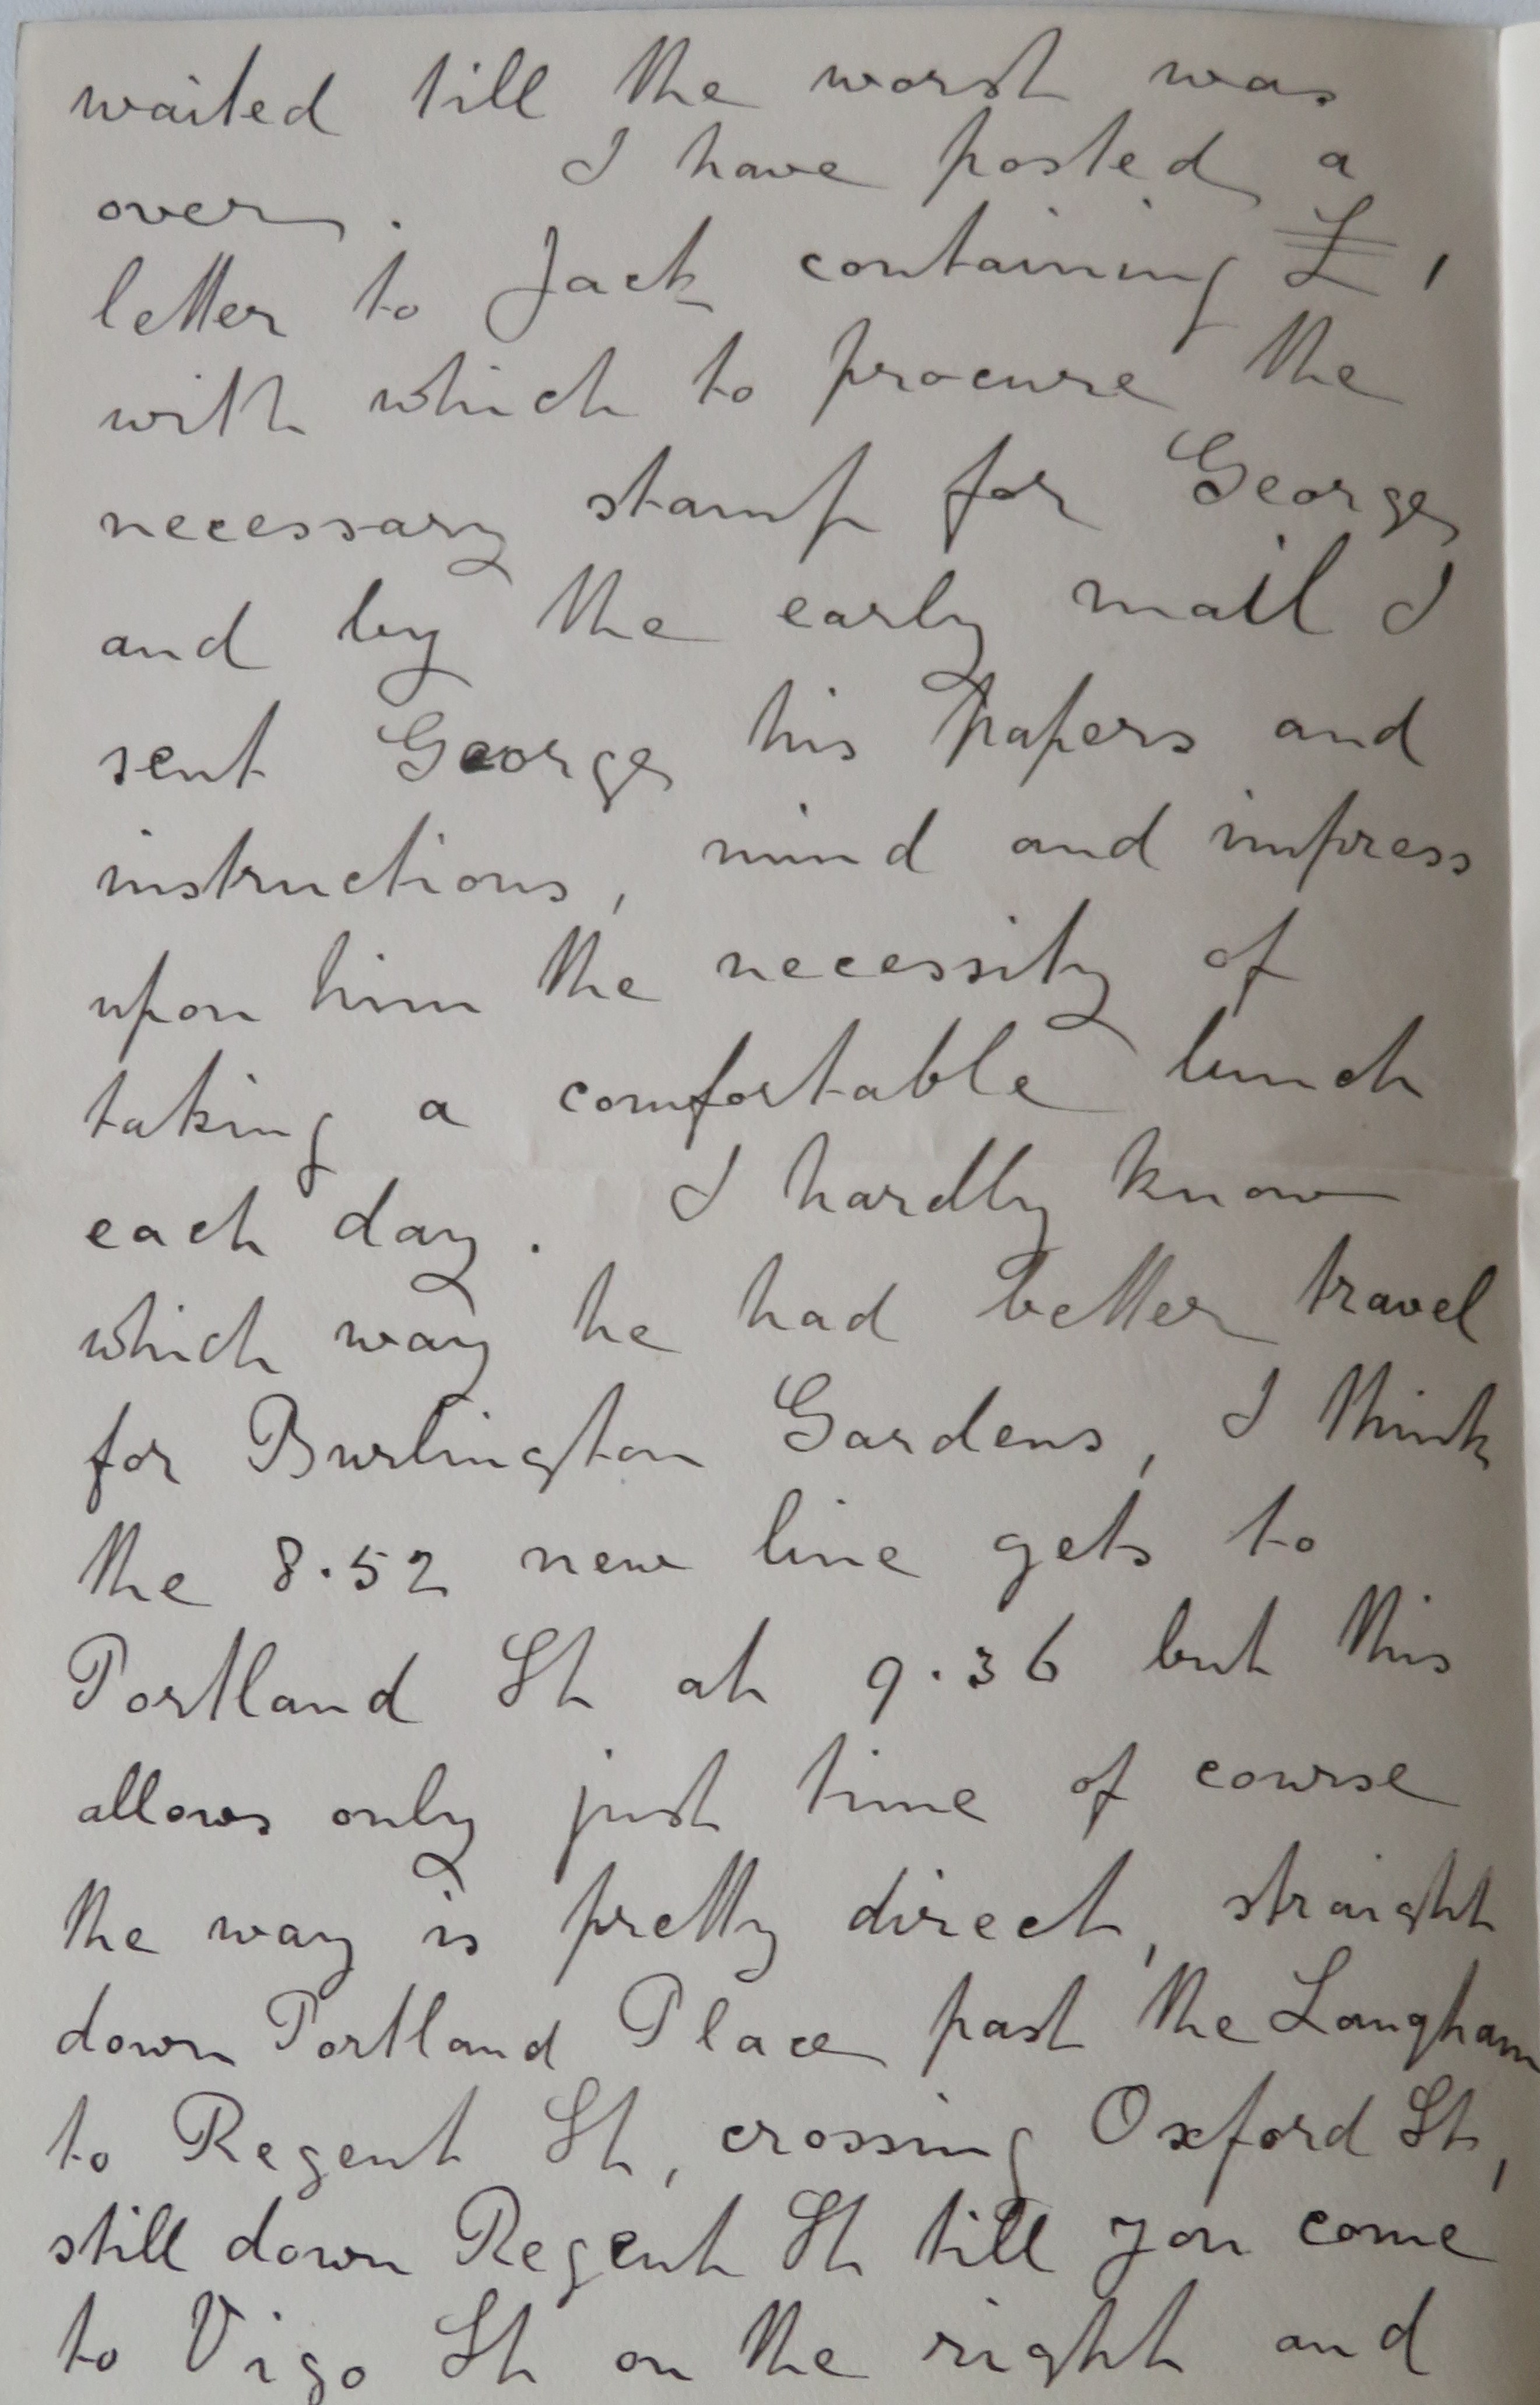 waited till the worst was
over. I have posted a
letter to Jack containing £1
with which to procure the
necessary stamp for George
and by the early mail I
sent George his papers and
instructions, mind and impress
upon him the necessity of
taking a comfortable lunch
each day. I hardly know
which way he had better travel
for Burlington Gardens, I think
the 8.52 new line gets to
Portland St at 9.36 but this
allows only just time of course
the way is pretty direct, straight
down Portland Place past the Langham
to Regent St, crossing Oxford St,
still down Regent St till you come
to Vigo St on the right and